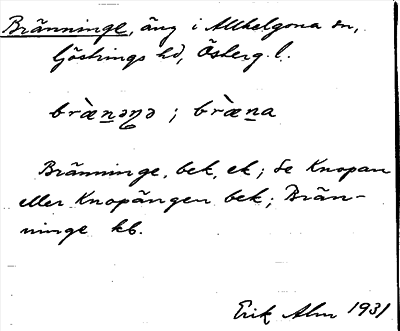 Bränninge, äng i Allhelgona sn,
Göstrings hd, Österg. l.
bræ̀nəŋə ; bræ̀na
Bränninge, bek, ek; se Knopan
eller Knopängen bek; Brän-
ninge kb.
Erik Alm 1931